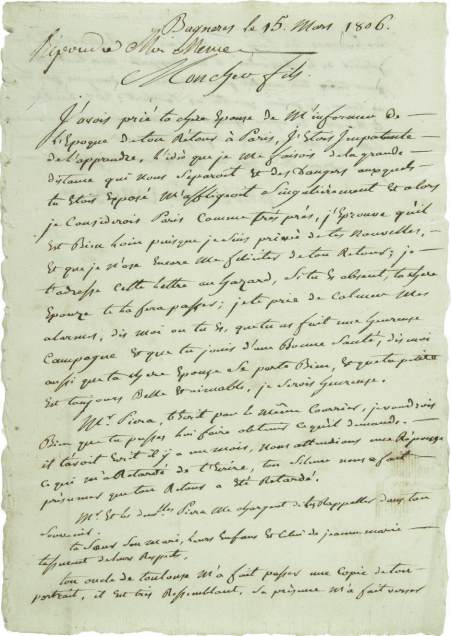 Bagneres le 15. Mars 1806.
Répondre Moi Même
Mon cher fils.
J'avois prié ta chere Epouse de M'informer de
l'Epoque de ton Retour à Paris, J'Etois Impatiente
de l'apprendre, l'idée que je Me faisois de la grande
distance qui Nous Separoit et des Dangers auxquels
tu Etois Exposé M'affligeoit Singulièrement et alors
je Considerois Paris Comme très près, j'Eprouve qu'il
Est Bien loin puisque je suis privée de tes Nouvelles,
Et que je n'ose Encore Me feliciter de ton Retour; je
t'adresse Cette Lettre au hazard, Si tu Es absent, ta chere
Epouze te la fera passer; je te prie de Calmer Mes
alarmes, dis Moi ou tu Es, que tu as fait une heureuse
Campagne et que tu jouis d'une Bonne Santé; dis moi
aussi que ta chere Epouse Se porte Bien, Et que ta petite
Est toujours Belle et aimable, je Serois heureuse.
Mr. t'Ecrit par le Même Courrier, je voudrois
Bien que tu pusses lui faire obtenir Ce qu'il demande.
il t'avoit Ecrit il y a un mois, Nous attendions une Réponse
Ce qui m'a Retardé de t'Ecrire, ton Silence nous a fait
présumer que ton Retour a Eté Retardé.
Mr. Et les Me chargent de les Rappeller dans ton
Souvenir.
ta Sœur Son mari, leurs Enfans Et Celui de jeanne marie
t'assurent de leurs Respets.
ton oncle de toulouse M'a fait passer une Copie de ton
portrait, il Est très Ressemblant, Sa M'a fait verser